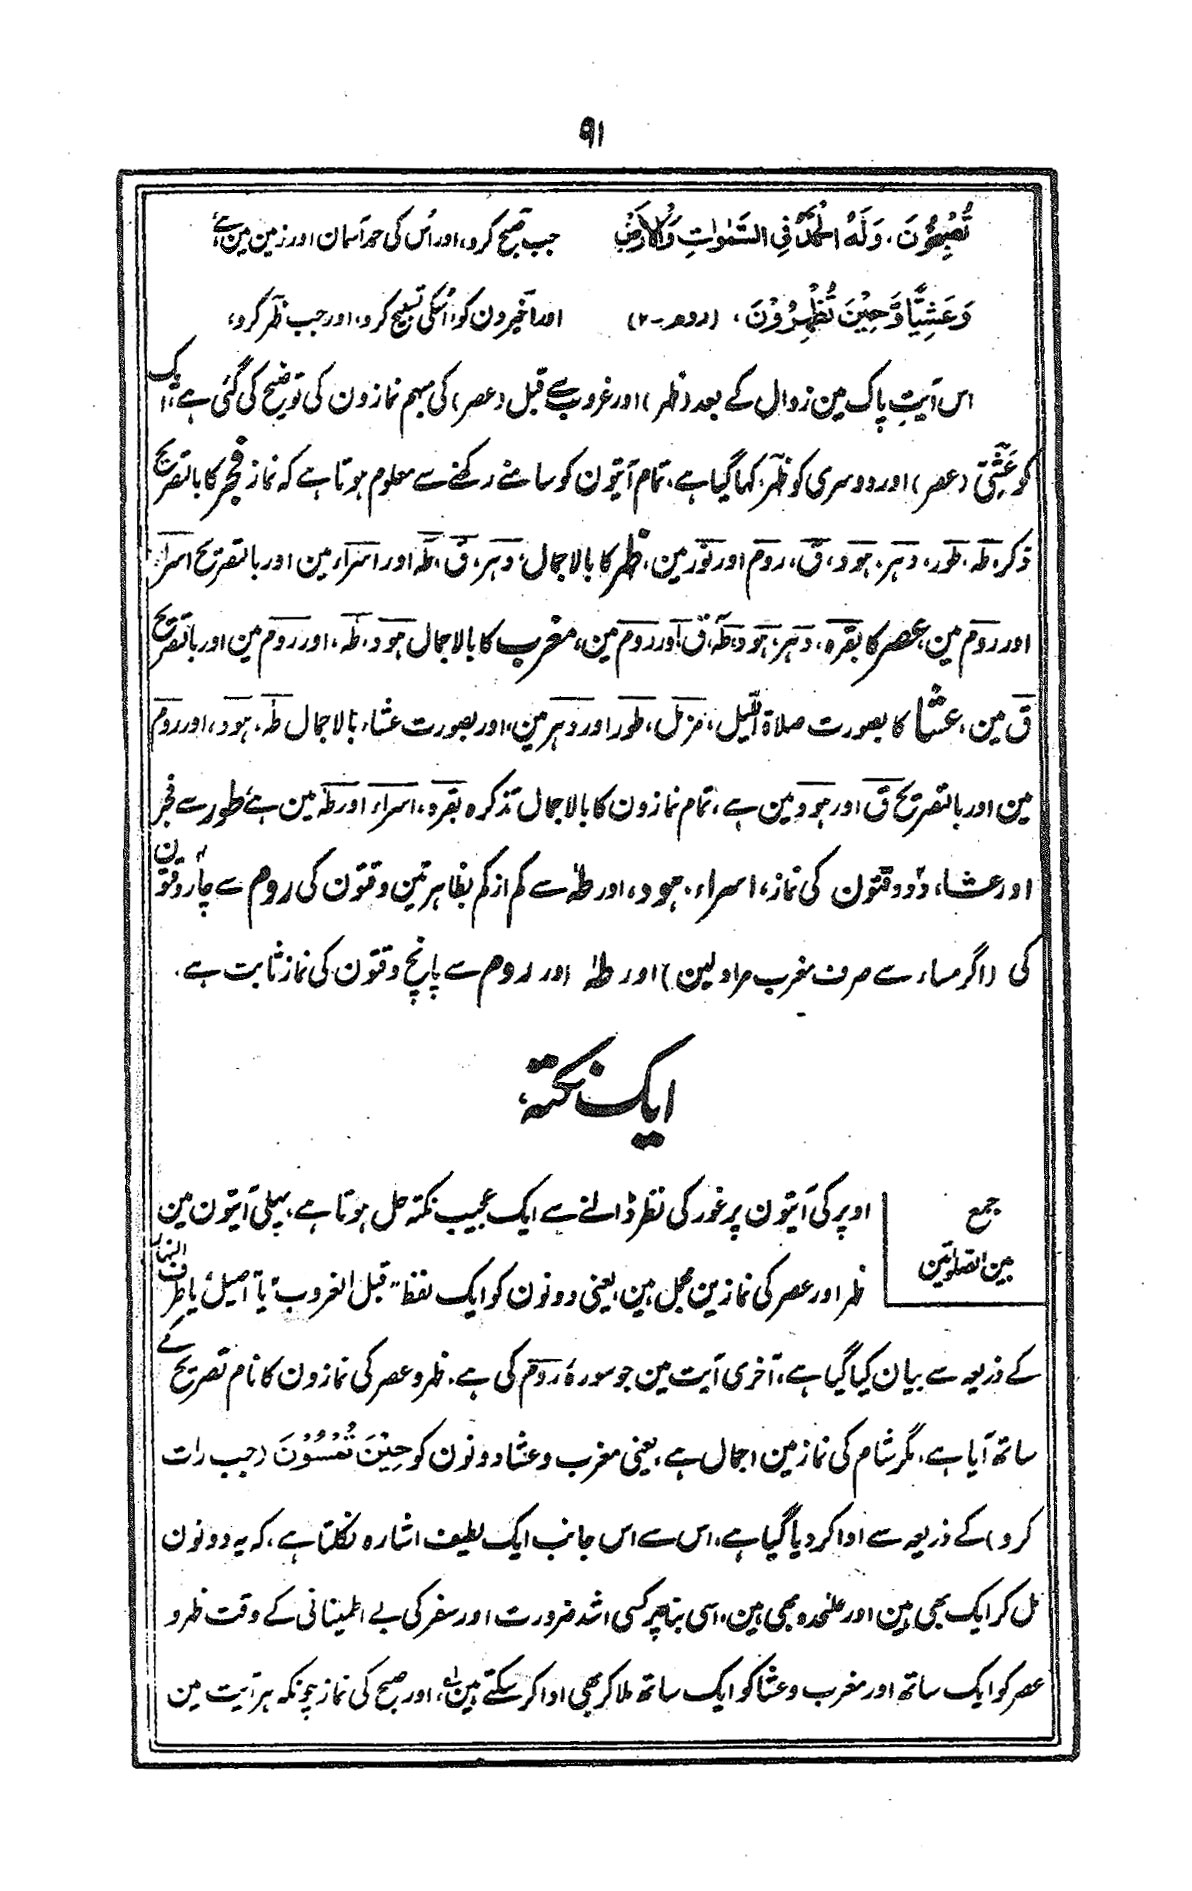 ۹۱
تُصْبِحُوْنَ، وَلَهُ الْحَمْدُ فِي السَّمٰوَاتِ وَالْاَرْضِ جب صبح کرو، اور اُس کی حمد آسمان اور زمین مین ہے
وَعَشِيًّا وَّحِيْنَ تُظْهِرُوْنَ، (روم-۲) اور اخیر دن کو، اُسکی تسبیح کرو، اور جب ظہر کرو،
اس آیتِ پاک مین زوال کے بعد (ظہر) اور غروب سے قبل (عصر) کی مبہم نمازون کی توضیح کی گئی ہے، ایک
کو عَشِیّ (عصر) اور دوسری کو ظہر، کہا گیا ہے، تمام آیتون کو سامنے رکھنے سے معلوم ہوتا ہے کہ نماز فجر کا بالتصریح
ذکر، طہ، طور، دہر، ہود، ق، روم اور نور مین، ظہر کا بالاجمال، دہر، ق، طہ اور اسراء مین اور بالتصریح اسراء
اور روم مین، عصر کا بقرہ، دہر، ہود، طہ، ق اور روم مین، مغرب کا بالاجمال ہود، طہ، اور روم مین اور بالتصریح
ق مین، عشا کا بصورت صلاۃ اللیل، مزمل، طور اور دہر مین، اور بصورت عشاء بالاجمال طہ، ہود، اور روم
مین اور بالتصریح ق اور ہود مین ہے، تمام نمازون کا بالاجمال تذکرہ بقرہ، اسراء اور طہ مین ہے، طور سے فجر
اور عشا، دو وقتون کی نماز، اسراء، ہود، اور طہٰ سے کم از کم بظاہر تین وقتون کی روم سے چار وقتون
کی (اگر مساء سے صرف مغرب مراد لین) اور طہٰ اور روم سے پانچ وقتون کی نماز ثابت ہے.
ایک نکتہ،
جمع
بین الصلوٰتین
اوپر کی آیتون پر غور کی نظر ڈالنے سے ایک عجیب نکتہ حل ہوتا ہے، پہلی آیتون مین
ظہر اور عصر کی نمازین مجمل ہین، یعنی دونون کو ایک لفظ "قبل الغروب" یا آصیل، یا طرف النہار
کے ذریعہ سے بیان کیا گیا ہے، آخری آیت مین جو سورۂ روم کی ہے، ظہر و عصر کی نمازون کا نام تصریح کے
ساتھ آیا ہے، مگر شام کی نماز مین اجمال ہے، یعنی مغرب و عشا دونون کو حِيْنَ تُمْسُوْنَ (جب رات
کرو) کے ذریعہ سے ادا کر دیا گیا ہے، اس سے اس جانب ایک لطیف اشارہ نکلتا ہے، کہ یہ دونون
مل کر ایک بھی ہین اور علٰحدہ بھی ہین، اسی بنا پر کسی اشد ضرورت اور سفر کی بے اطمینانی کے وقت ظہر و
عصر کو ایک ساتھ اور مغرب و عشا کو ایک ساتھ ملا کر بھی ادا کر سکتے ہین، اور صبح کی نماز چونکہ ہر آیت مین